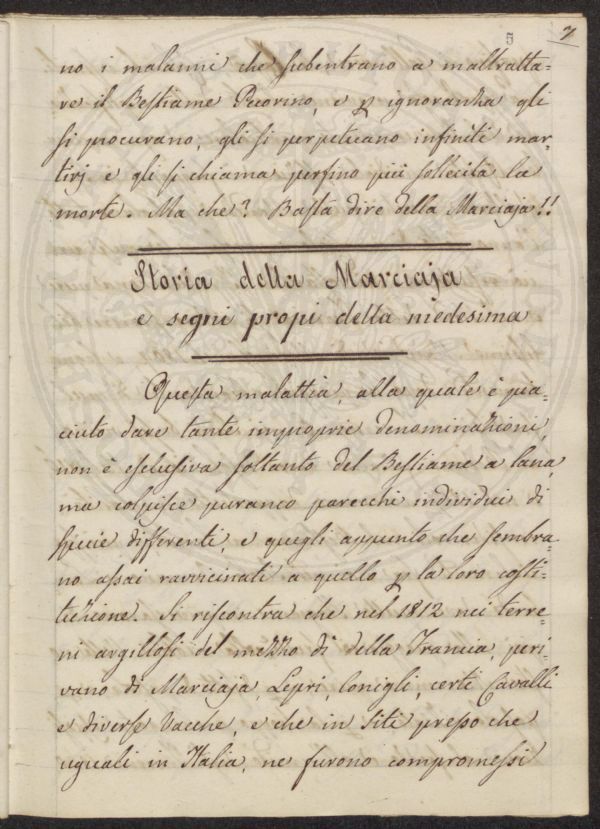 5 7
no i malanni che subentrano a maltratta=
re il Bestiame Pecorino, e p ignoranza gli
si procurano, gli si perpetuano infiniti mar=
tirj e gli si chiama perfino più sollecita la
morte. Ma che? Basta dire della Marciaja!!
Storia della Marciaja
e segni propi della medesima
Questa malattia, alla quale è pia=
ciuto dare tante improprie denominazioni,
non è esclusiva soltanto del Bestiame a lana,
ma colpisce puranco parecchi individui di
specie differenti, e quegli appunto che sembra=
no assai ravvicinati a quello p la loro costi=
tuzione. Si riscontra che nel 1812 nei terre=
ni argillosi del mezzo dì della Francia, peri=
vano di Marciaja, Lepri, Conigli, certi Cavalli
e diverse Vacche, e che in siti presso che
uguali in Italia, ne furono compromessi